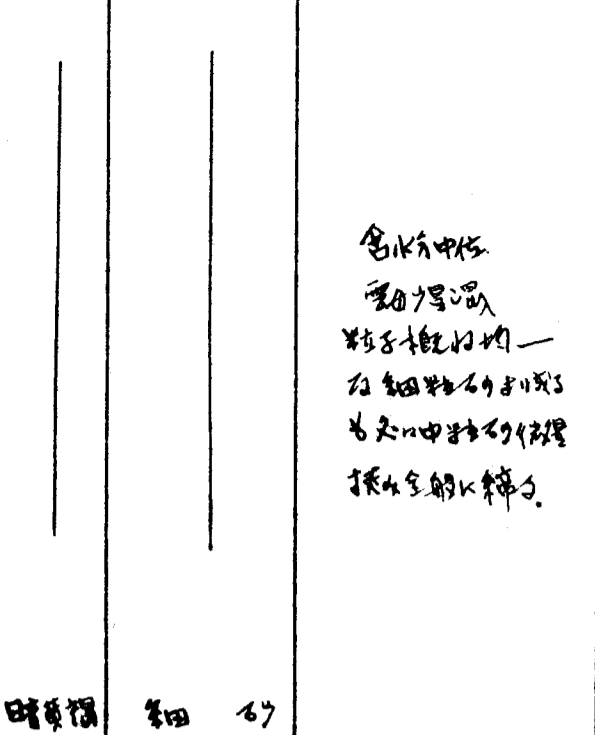 含水分中位
雲母少量混入
粒子概ね均一
な細粒砂より成る
も処々中粒砂微量
挟み全般に締る。
暗黄褐
細 砂